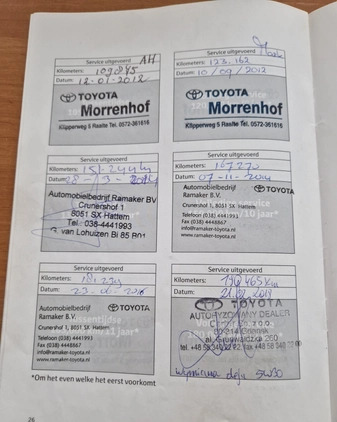 Service uitgevoerd AH
Kilometers: 109845
Datum: 12-01-2012
TOYOTA
Morrenhof
Klipperweg 5 Raalte Tel. 0572-361616
Service uitgevoerd
Kilometers: 123.162
Datum: 10/09/2012
TOYOTA
Morrenhof
Klipperweg 5 Raalte Tel. 0572-361616
Service uitgevoerd
Kilometers:
Datum:
Automobielbedrijf Ramaker BV
Crunershof 1
8051 SX Hattem
Tel : 038-4441993
van Lohuizen
Service uitgevoerd
Kilometers: 167270
Datum: 07-11-2014
Automobielbedrijf TOYOTA
Ramaker B.V.
Crunershof 1, 8051 SX Hattem
Telefoon (038) 4441993
Fax (038) 4448867
info@ramaker-toyota.nl
www.ramaker-toyota.nl
Service uitgevoerd
Kilometers:
Datum:
Automobielbedrijf TOYOTA
Ramaker B.V.
Crunershof 1, 8051 SX Hattem
Telefoon (038) 4441993
Fax (038) 4448867
info@ramaker-toyota.nl
www.ramaker-toyota.nl
Service uitgevoerd
Kilometers: 196 465 Km
Datum:
TOYOTA
AUTORYZOWANY DEALER
5W30
*Om het even welke het eerst voorkomt
26